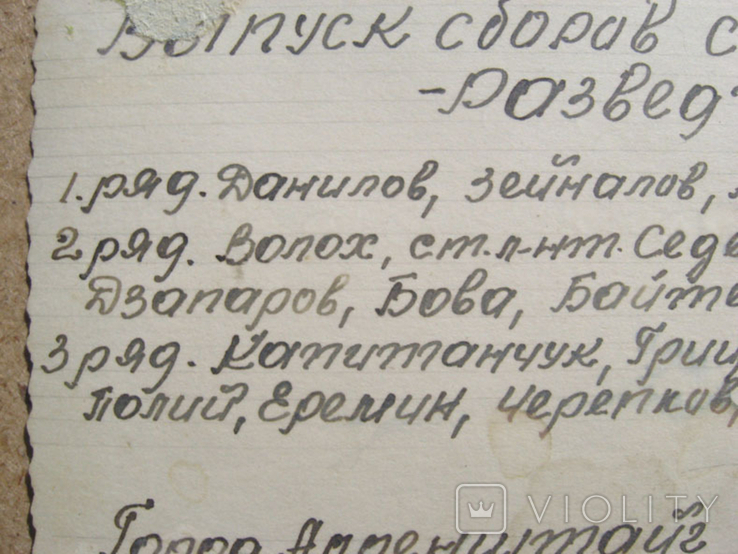 Выпуск сборав с
-Развед
1. ряд. Данилов, Зейналов,
2 ряд. Волох, ст. л-нт. Седе
Дзапаров, Бова, Байте
3 ряд. Капитанчук, Гриц
Полий, Еремин, Черепков,
Город Алленштайг
VIOLITY